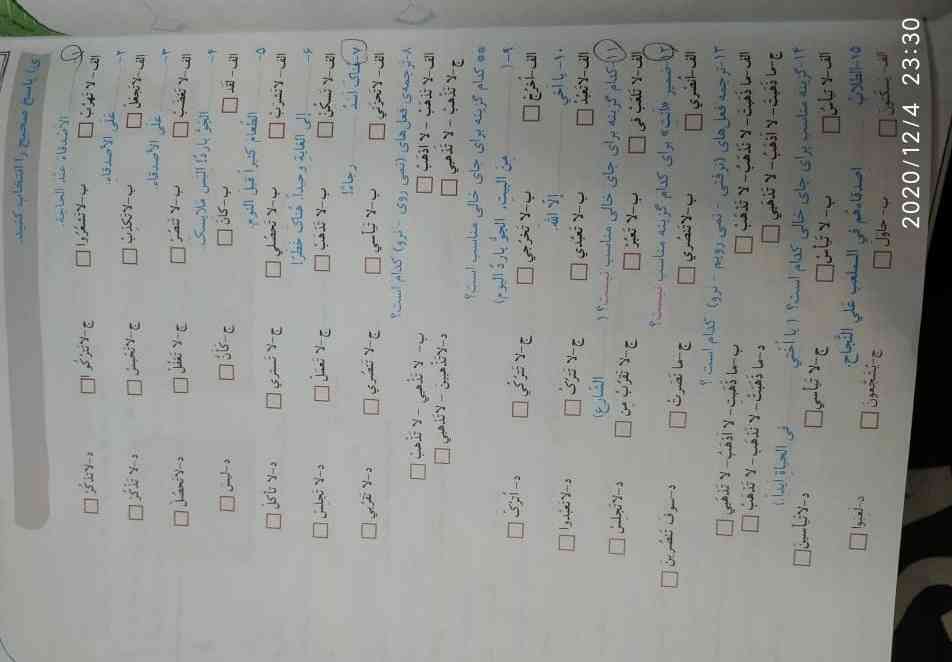 ی) پاسخ صحیح را انتخاب کنید.
۱- الأصدقاءَ عندَ الحاجةِ.
الف- لا تَهرُبْ ب- لاتَسفَروا ج- لاتَترُکوا د- لاتَذکُر
۲- علی الأصدقاءِ.
الف- لاتَجعَلْ ب- لاتَکذِبْ ج- لاتَحبِسْ د- لا تَذکُر
۳- علی الأصدقاءِ.
الف- لا تَغضَبْ ب- لا تَنصُرْ ج- لا تَغفُلْ د- لاتَحصُلْ
۴- الجوّ بارِدًا اِلبَس ملابسک.
الف- لَقَد ب- کانَ ج- کأنَّ د- لیسَ
۵- الطّعام کثیراً قبل النّومِ.
الف- لاتَشرَبْ ب- لا تَحصُلي ج- لا تَشتَري د- لا تأکُلْ
۶- إلی الغابَةِ وحیداً هناکَ خَطَرًا
الف- لاتَسکُنْ ب- لا تَذهَبْ ج- لا تَعمَلْ د- لا تَجلِسْ
۷- هُناکَ أسَدٌ رجاءًا
الف- لاتَحزَني ب- لا تَیأسي ج- لا تَنصُري د- لا تَقرَبي
۸- ترجمه‌ی فعل‌های (نمی روی - نرو) کدام است؟
الف- لا تَذهَبُ - لا اَذهَبُ ب- لا تَذهبي - لا تَذهَبْ
ج- لا تَذهَبُ - لا تَذهَبي د- لاتَذهبینَ - لاتَذهَبي
** کدام گزینه برای جای خالی مناسب است؟
۹- ( من البیت، الجوّ بارِدٌ الیوم)
الف- اُخرُج ب- لا تَخرُجي ج- لاتَترُکي د- اُترُک
۱۰- یا أخي إلّا اللهَ.
الف- لاتَعبُد ب- لا تَعبُدي ج- لا تَترُکْ د- لاتَعبُدوا
۱۱- کدام گزینه برای جای خالی مناسب نیست؟ ( الشارع)
الف- لا تَلعَبْ في ب- لا تَعبُرْ ج- لا تَقرُبْ مِن د- لاتَجلِسْ
۱۲- ضمیر «أنتِ» برای کدام گزینه مناسب نیست؟
الف- اُنصُري ب- لا تَنصُري ج- ما نَصَرتُ د- سوف تَنصُرینَ
۱۳- ترجمه فعل‌های (نرفتی - نمی رویم - نرو) کدام است ؟
الف- ما ذَهَبتَ - لا نَذهَبُ - لا تَذهَبْ ب- ما ذَهَبت - لا اَذهَبُ - لا تَذهَبي
ج- ما ذَهَبتَ - لا اَذهَبُ - لا تَذهَبي د- ما ذَهَبتُ - لا نَذهَبُ - لا تَذهَبْ
۱۴- گزینه مناسب برای جای خالی کدام است؟ ( یا أُختي في الحیاةِ أبَداً)
الف- لا تیأسُ ب- لا تَیأسْ ج- لا تَیأسي د- لاتَیأسینَ
۱۵- الطلّاب أصدقاءَهُم في الملعب علی النَّجاح.
الف- یسکنون ب- حاوَلَ ج- یُشجّعونَ د- لعبوا
2020/12/4 23:30